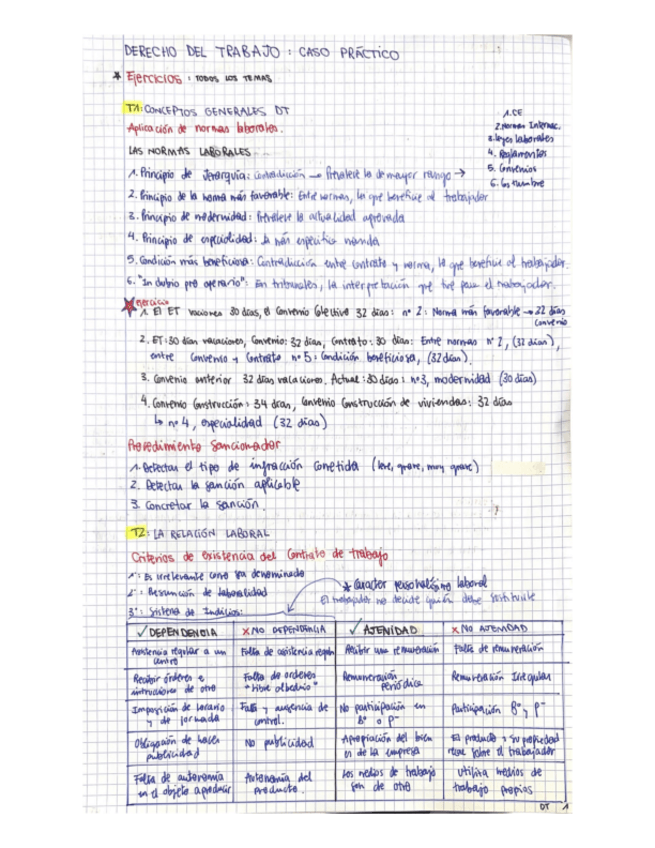 DERECHO DEL TRABAJO : CASO PRÁCTICO
* Ejercicios : TODOS LOS TEMAS
T1: CONCEPTOS GENERALES DT
Aplicación de normas laborales.
LAS NORMAS LABORALES
1. CE
2. Normas Internac.
3. leyes laborales
4. Reglamentos
5. Convenios
6. Costumbre
1. Principio de Jerarquía: Contradicción → Prevalece la de mayor rango →
2. Principio de la norma más favorable: Entre normas, la que beneficie al trabajador
3. Principio de modernidad: Prevalece la actualidad aprobada
4. Principio de especialidad: la más específica manda
5. Condición más beneficiosa: Contradicción entre contrato y norma, la que beneficie al trabajador.
6. "In dubio pro operario": En tribunales, la interpretación que favorece al trabajador.
Ejercicio
1. El ET vaciones 30 días, el Convenio Colectivo 32 días: nº 2: Norma más favorable → 32 días
Convenio
2. ET: 30 días vacaciones, Convenio: 32 días, Contrato: 30 días: Entre normas nº 2, (32 días),
entre Convenio y Contrato nº 5: Condición beneficiosa, (32 días).
3. Convenio anterior 32 días vacaciones. Actual: 30 días: nº3, modernidad (30 días)
4. Convenio Construcción: 34 días, Convenio Construcción de viviendas: 32 días
↳ nº 4, especialidad (32 días)
Procedimiento Sancionador
1. Detectar el tipo de infracción cometida (leve, grave, muy grave)
2. Detectar la sanción aplicable
3. Concretar la sanción.
T2: LA RELACIÓN LABORAL
Criterios de existencia del Contrato de trabajo
1º: Es irrelevante como sea denominado
2º: Presunción de laboralidad
3º: Sistema de Indicios:
* Carácter personalísimo laboral
El trabajador no decide quién debe sustituirle
✓ DEPENDENCIA | x NO DEPENDENCIA | ✓ AJENIDAD | x NO AJENIDAD
Asistencia regular a un centro | Falta de asistencia regular | Recibir una remuneración | Falta de remuneración
Recibir órdenes e instrucciones de otro | Falta de ordenes "libre albedrío" | Remuneración periódica | Remuneración Irregular
Imposición de horario y de jornada | Falta y ausencia de control. | No participación en Bº o Pº | Participación Bº y Pº
Obligación de hacer publicidad | No publicidad | Apropiación del bien es de la empresa | El producto y su propiedad recae sobre el trabajador
Falta de autonomía en el objeto a producir | Autonomía del producto. | Los medios de trabajo son de otro | Utiliza medios de trabajo propios
DT 1